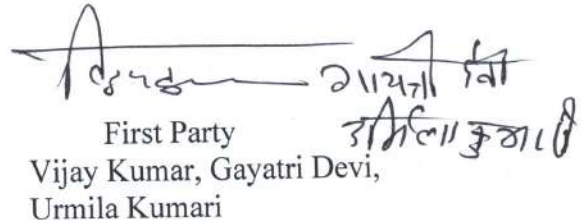 गायत्री देवी
उर्मिला कुमारी
First Party
Vijay Kumar, Gayatri Devi,
Urmila Kumari